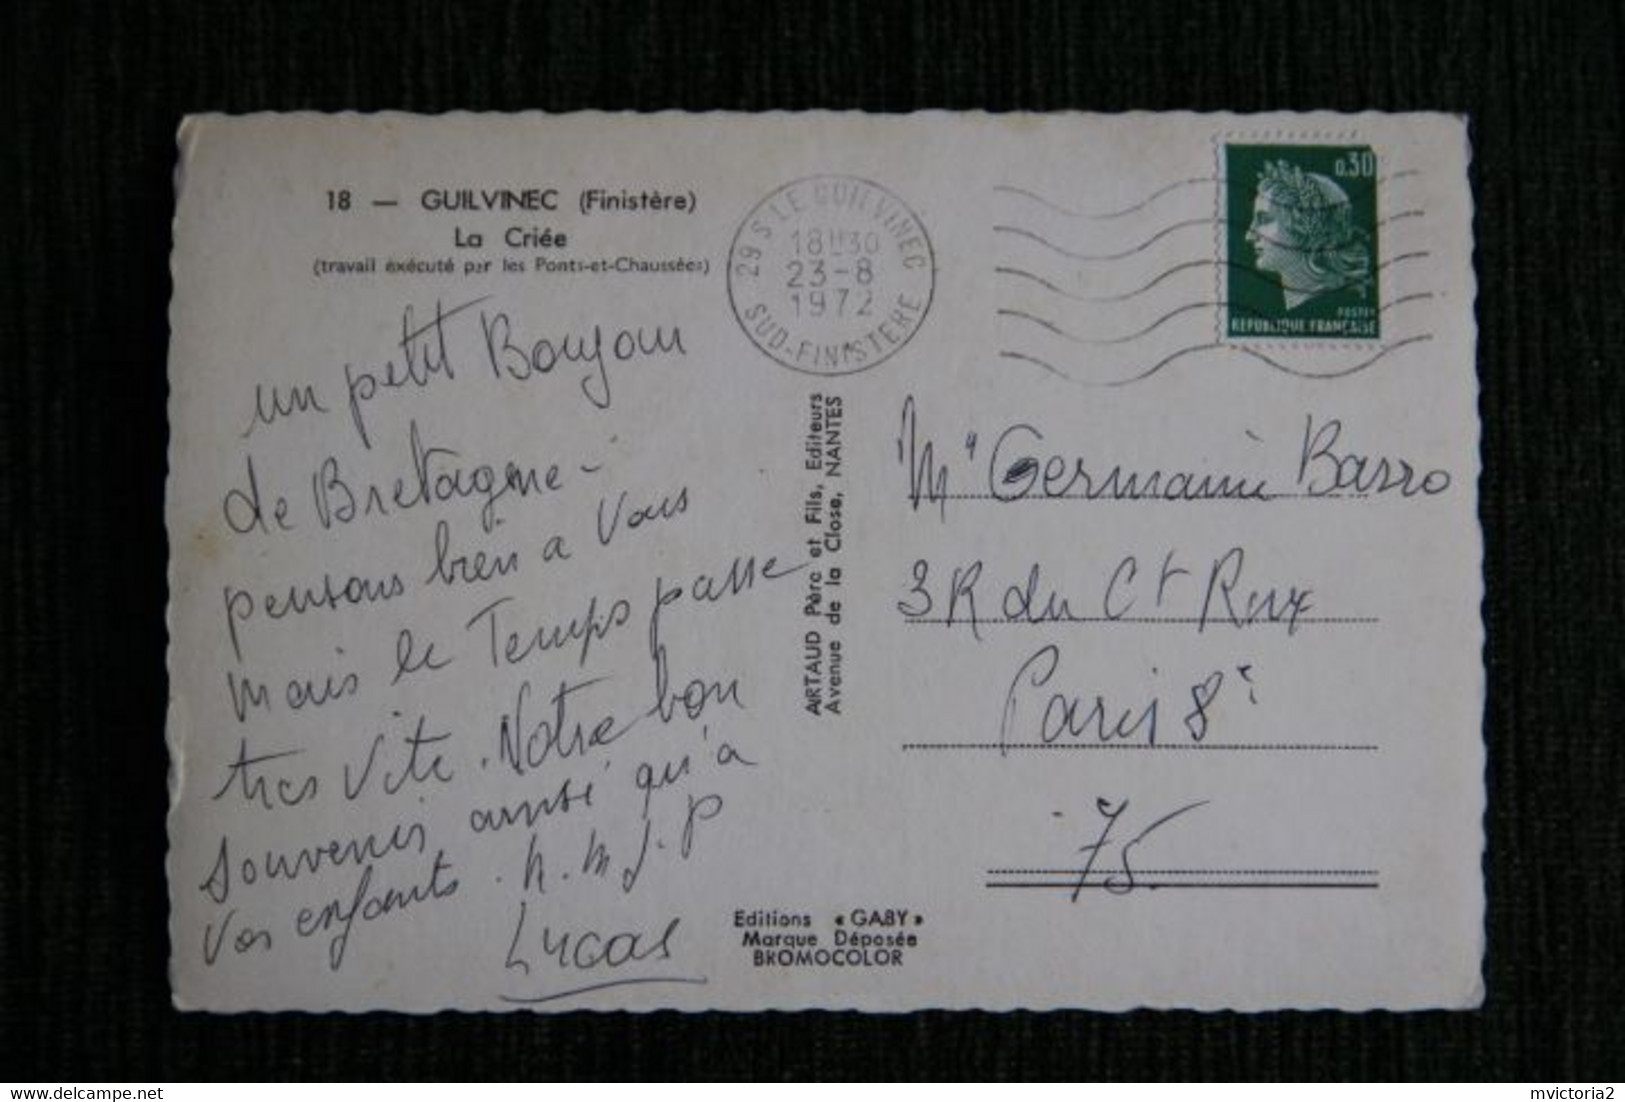 18 — GUILVINEC (Finistère)
La Criée
(travail éxécuté par les Ponts-et-Chaussées)
29 S LE GUILVINEC
18H30
23-8
1972
SUD-FINISTERE
0,30
POSTES
REPUBLIQUE FRANÇAISE
un petit Bonjour
de Bretagne -
pensons bien a Vous
mais le Temps passe
tres Vite. Notre bon
souvenir ainsi qu'a
Vos enfants. N. M J. P
Lucas
ARTAUD Père et Fils, Editeurs
Avenue de la Close, NANTES
Editions « GABY »
Marque Déposée
BROMOCOLOR
Germaine Barro
3 R du Ct Rux
Paris 8e
75.
mvictoria2